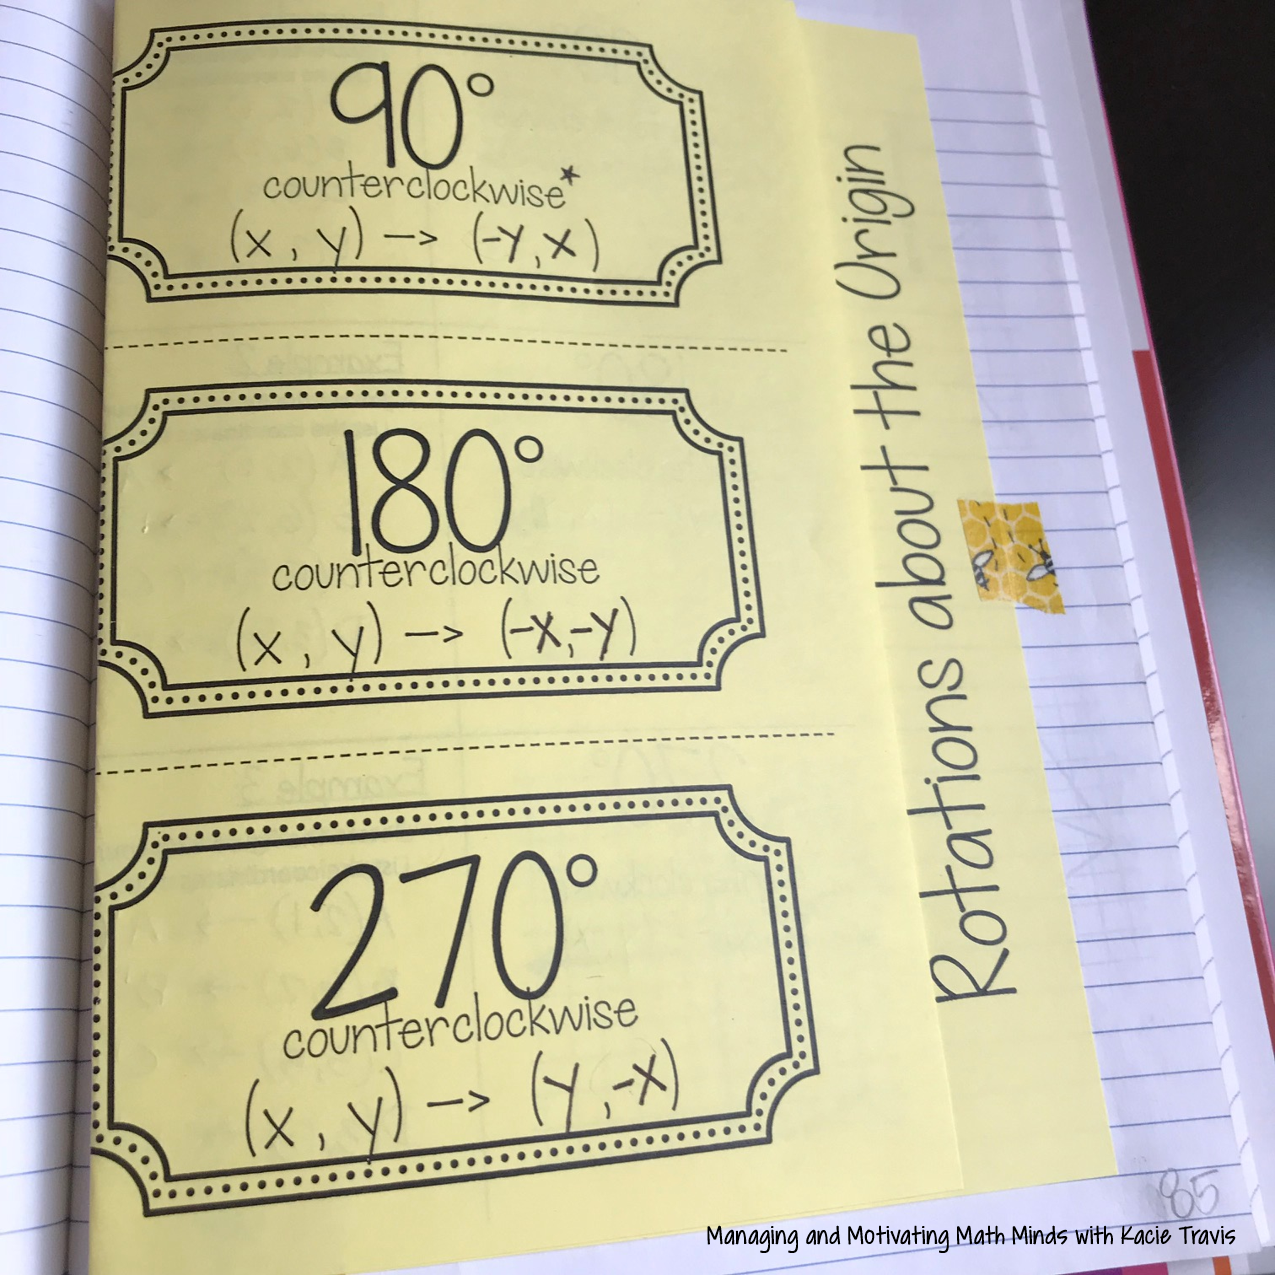 90°
counterclockwise*
(x, y) -> (-y, x)
180°
counterclockwise
(x, y) -> (-x, -y)
270°
counterclockwise
(x, y) -> (y, -x)
Rotations about the Origin
85
Managing and Motivating Math Minds with Kacie Travis